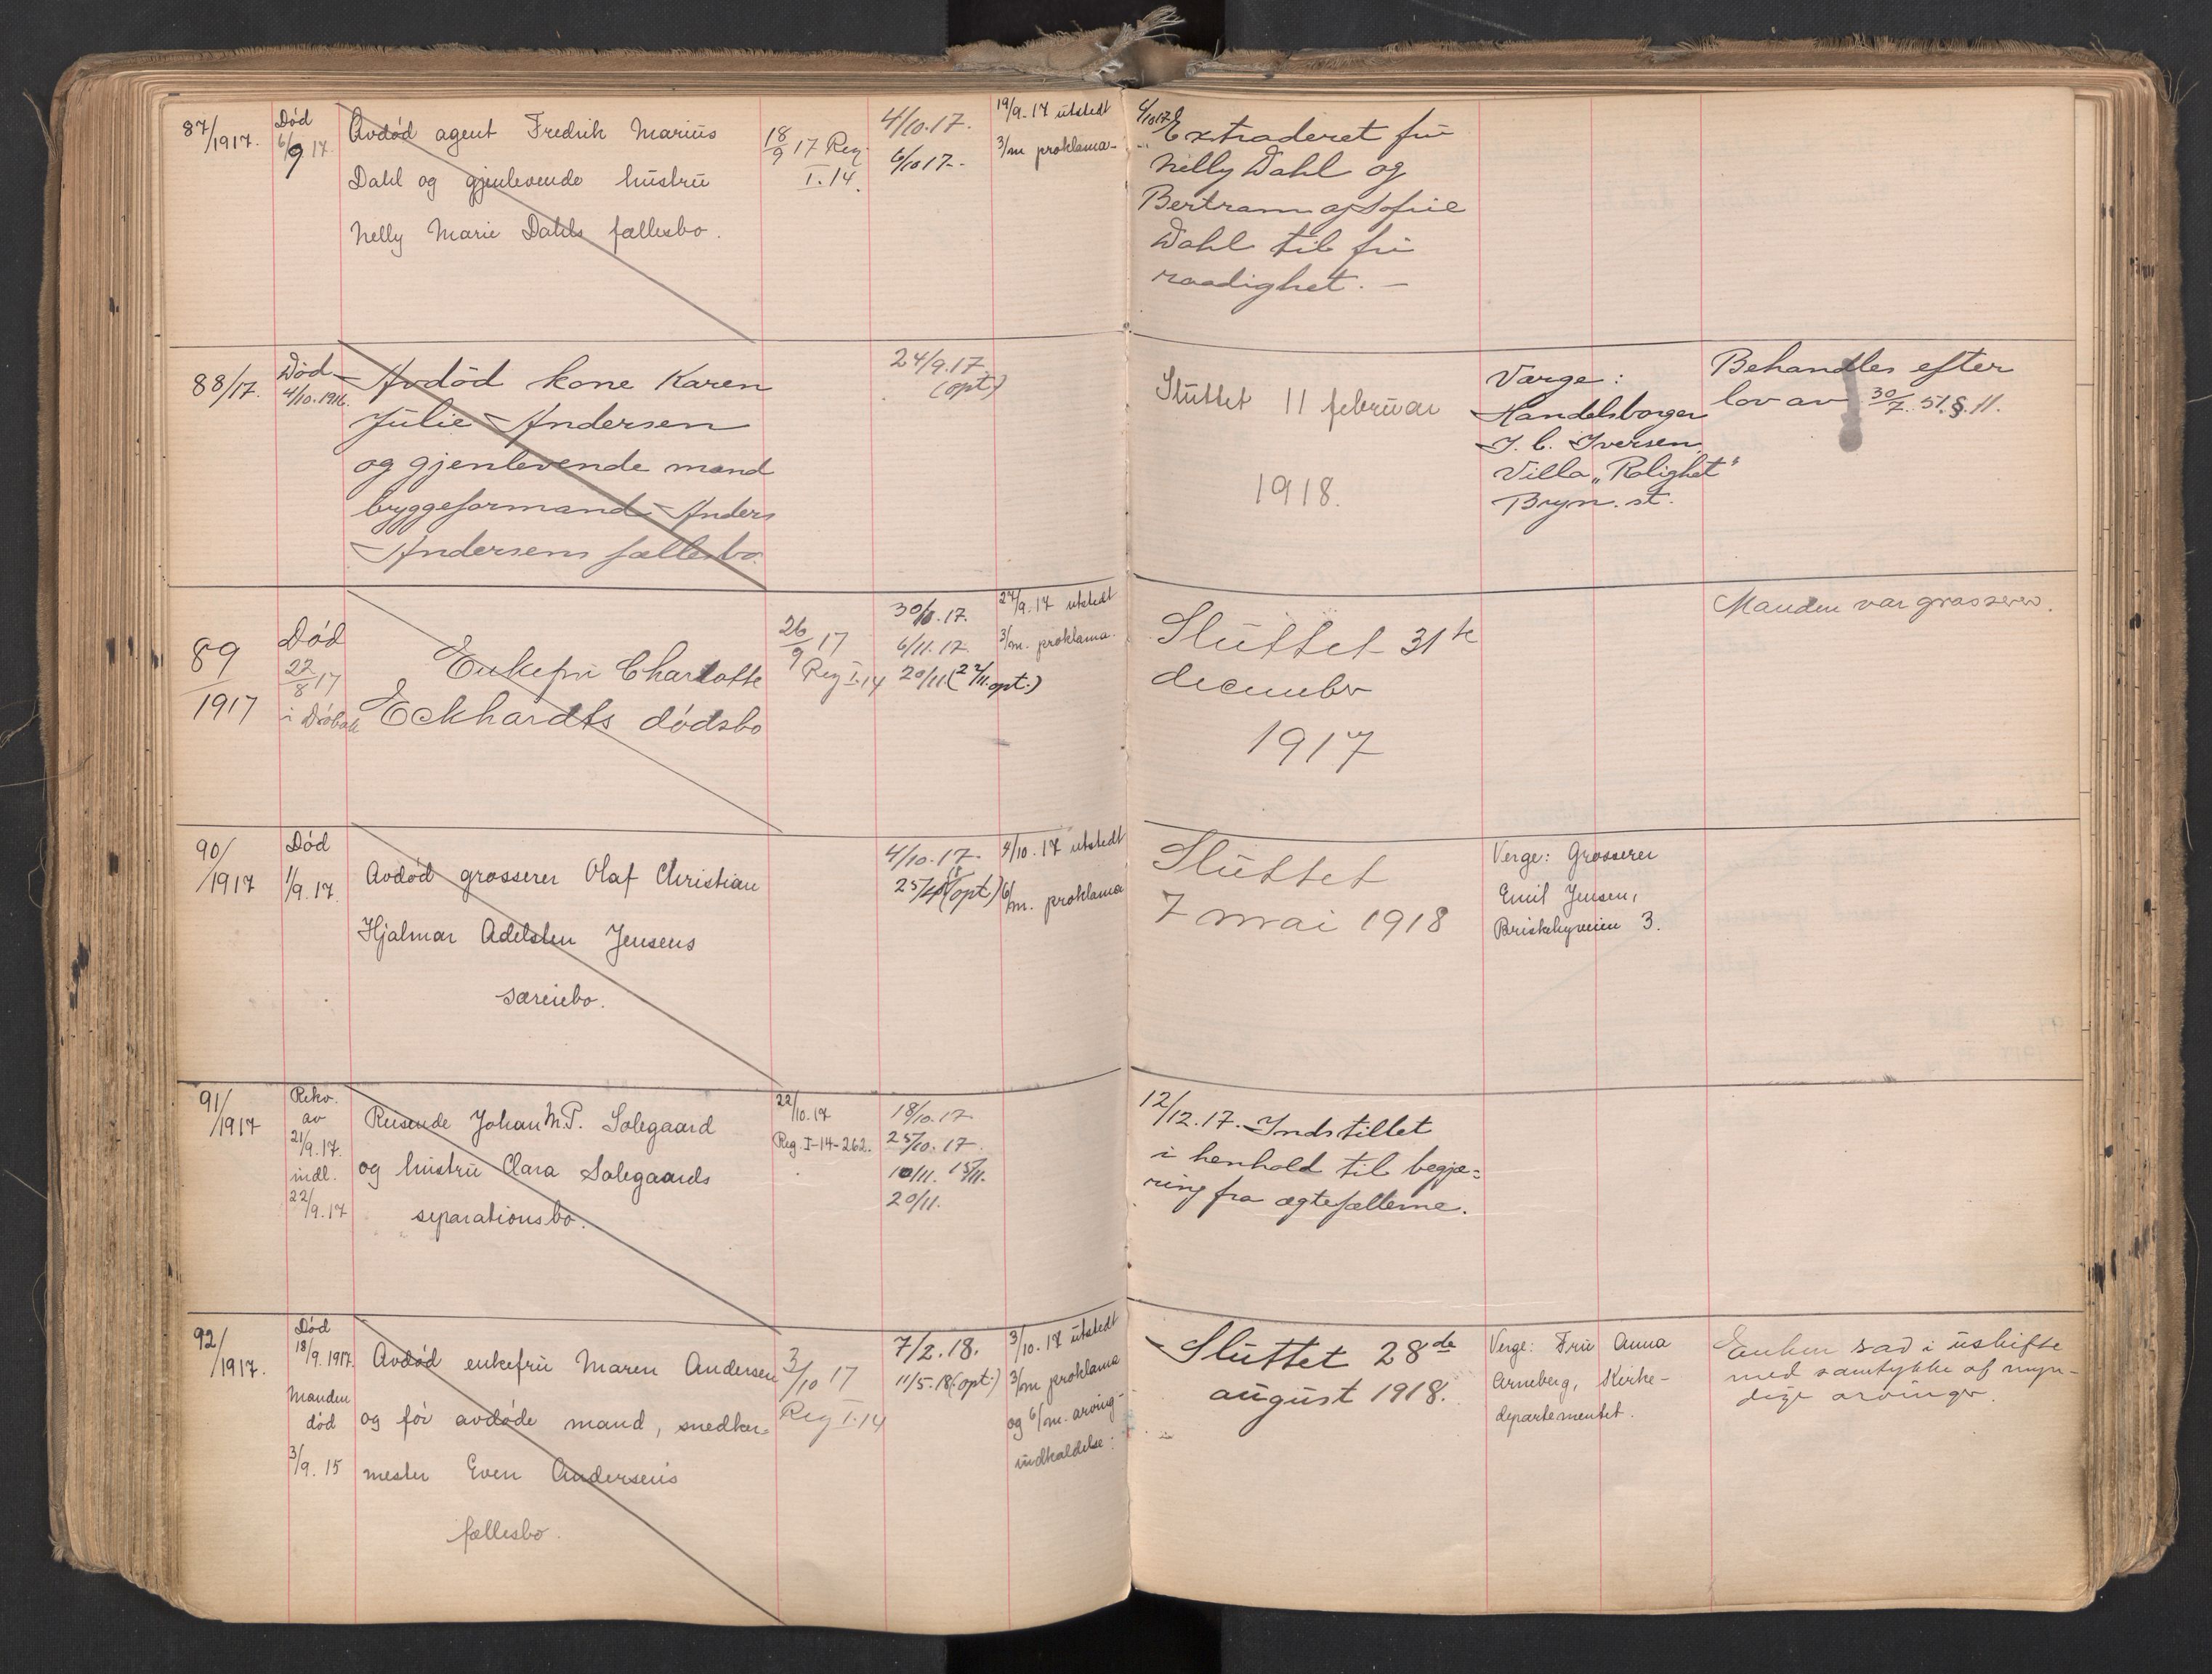 87/1917.
Død
6/9 17.
Avdød agent Fredrik Marius
Dahl og gjenlevende hustru
Nelly Marie Dahls fællesbo.
18/9 17 Reg.
I. 14.
4/10.17.
6/10 17.-
19/9.17 utstedt
3/m proklama-
6/10 17. Extraderet fru
Nelly Dahl og
Bertram og Sofie
Dahl til fri
raadighet. -
88/17.
Død
4/10.1916.
Avdød kone Karen
Julie Andersen
og gjenlevende mand
byggeformand Anders
Andersens fællesbo.
24/9.17
(opt.)
Sluttet 11 februar
1918.
Værge:
Handelsborger
I. C. Iversen,
Villa „Rolighet“
Bryn. st.
Behandles efter
lov av 30/7. 51. §. 11.
89/1917
Død
22/8 17
i Drøbak
Enkefru Charlotte
Eckhardts dødsbo
26/9 17
Reg I.14
30/10.17.
6/11.17.
20/11 (22/11. opt.)
27/9.17 utstedt
3/m. proklama.
Sluttet 31te
december
1917
Manden var grosserer.
90/1917
Død
1/9.17.
Avdød grosserer Olaf Christian
Hjalmar Adelsten Jensens
særeiebo.
4/10.17.
25/4 18 (opt.)
4/10.17 utstedt
6/m. proklama
Sluttet
7 mai 1918
Verge: Grosserer
Emil Jensen,
Briskebyveien 3.
91/1917
Rekv.
av
21/9.17.
indl.
22/9.17
Reisende Johan M.P. Solegaard
og hustru Clara Solegaards
separationsbo.
22/10.17
Reg. I-14-262.
18/10.17
25/10.17.
10/11. 15/11.
20/11.
12/12.17. Indstillet
i henhold til begjæ=
ring fra ægtefællerne.
92/1917.
Død
18/9.1917.
Manden
død
3/9.15
Avdød enkefru Maren Andersen
og før avdøde mand, snedker=
mester Even Andersens
fællesbo.
3/10 17
Reg I.14
7/2.18.
11/5.18 (opt.)
3/10.17 utstedt
3/m proklama
og 6/m. arving-
indkaldelse:
Sluttet 28de
august 1918.
Verge: Fru Anna
Arneberg, Kirke-
departementet.
Enken sad i uskifte
med samtykke af myn-
dige arvinger.